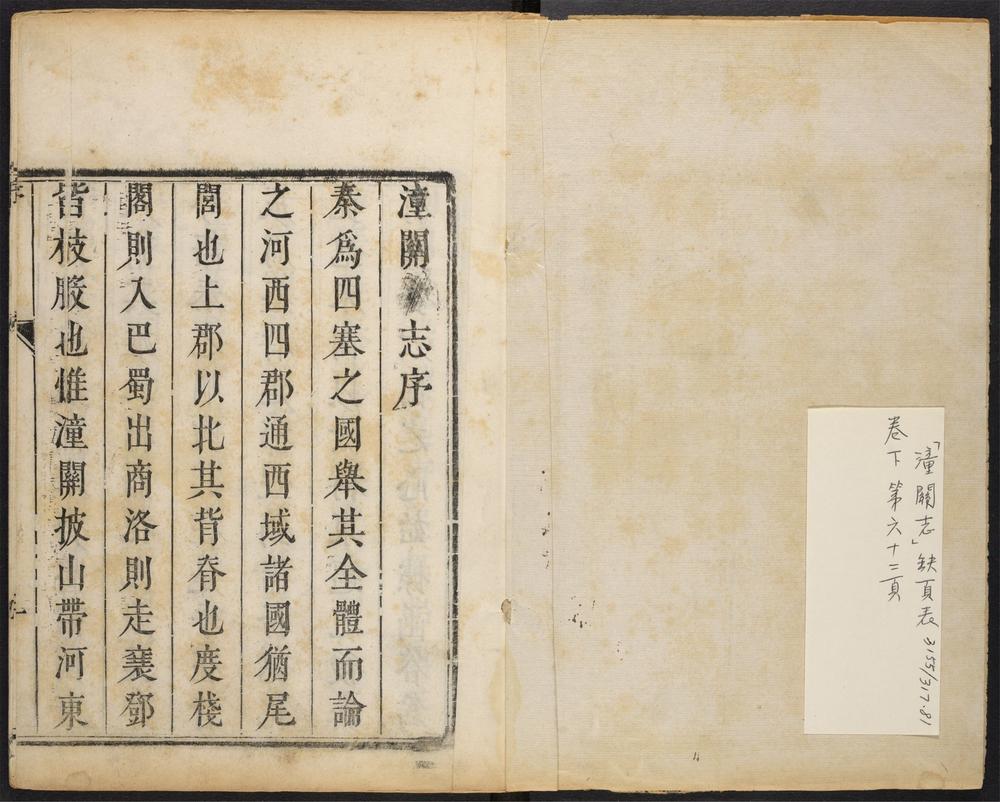 「潼關志」缺頁表 3155/317.81
卷下第六十二頁
潼關志序
秦爲四塞之國舉其全體而論
之河西四郡通西域諸國猶尾
閭也上郡以北其背脊也度棧
閣則入巴蜀出商洛則走襄鄧
皆枝股也惟潼關披山帶河東